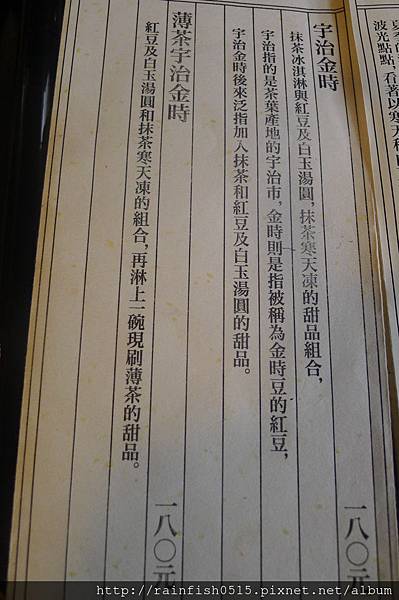 波光點點，看著以寒天
宇治金時
抹茶冰淇淋與紅豆及白玉湯圓，抹茶寒天凍的甜品組合，
宇治指的是茶葉產地的宇治市，金時則是指被稱為金時豆的紅豆，
宇治金時後來泛指加入抹茶和紅豆及白玉湯圓的甜品。
一八〇元
薄茶宇治金時
紅豆及白玉湯圓和抹茶寒天凍的組合，再淋上一碗現刷薄茶的甜品。
一八〇元
http://rainfish0515.pixnet.net/album